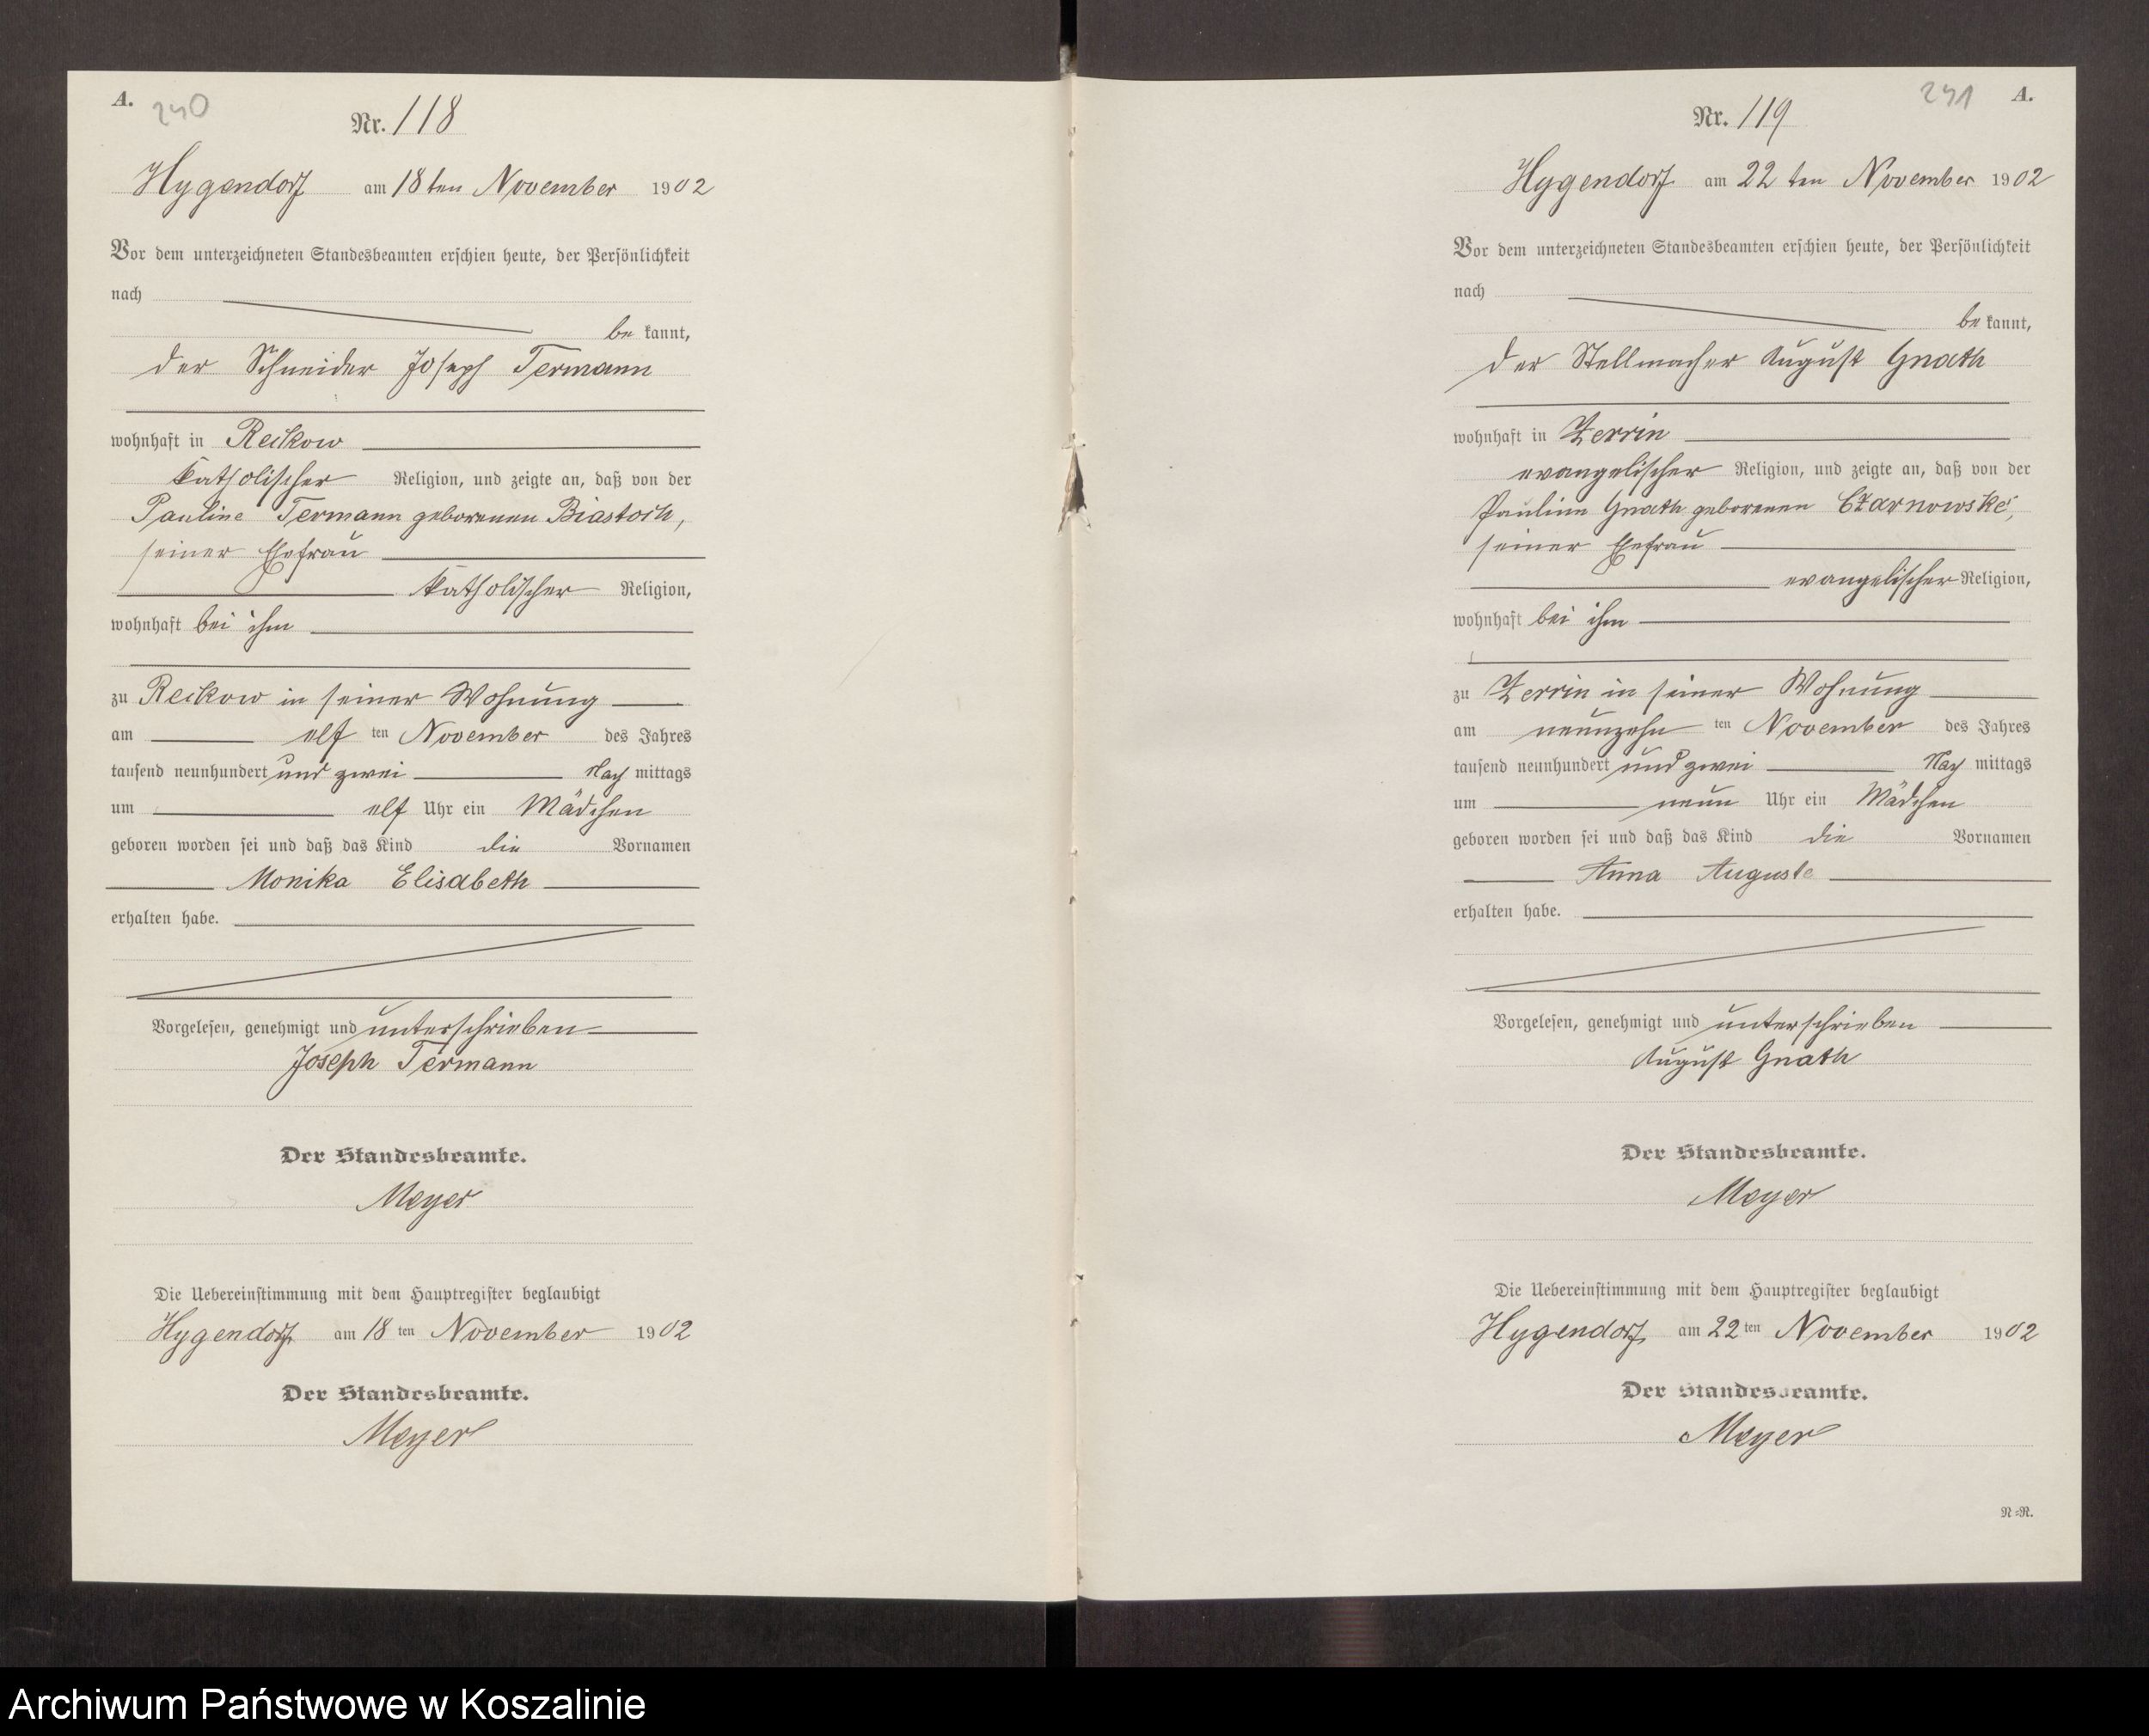 A.
240
Nr. 118
Hygendorf am 18ten November 1902
Vor dem unterzeichneten Standesbeamten erschien heute, der Persönlichkeit
nach
be kannt,
der Schneider Joseph Termann
wohnhaft in Reckow
katholischer Religion, und zeigte an, daß von der
Pauline Termann geborenen Biastoch,
seiner Ehefrau
katholischer Religion,
wohnhaft bei ihm
zu Reckow in seiner Wohnung
am elf ten November des Jahres
tausend neunhundert und zwei Nach mittags
um elf Uhr ein Mädchen
geboren worden sei und daß das Kind die Vornamen
Monika Elisabeth
erhalten habe.
Vorgelesen, genehmigt und unterschrieben
Joseph Termann
Der Standesbeamte.
Meyer
Die Uebereinstimmung mit dem Hauptregister beglaubigt
Hygendorf am 18 ten November 1902
Der Standesbeamte.
Meyer
241 A.
Nr. 119
Hygendorf am 22 ten November 1902
Vor dem unterzeichneten Standesbeamten erschien heute, der Persönlichkeit
nach
be kannt,
der Stellmacher August Gnath
wohnhaft in Zerrin
evangelischer Religion, und zeigte an, daß von der
Pauline Gnath geborenen Czarnowske,
seiner Ehefrau
evangelischer Religion,
wohnhaft bei ihm
zu Zerrin in seiner Wohnung
am neunzehn ten November des Jahres
tausend neunhundert und zwei Nach mittags
um neun Uhr ein Mädchen
geboren worden sei und daß das Kind die Vornamen
Anna Auguste
erhalten habe.
Vorgelesen, genehmigt und unterschrieben
August Gnath
Der Standesbeamte.
Meyer
Die Uebereinstimmung mit dem Hauptregister beglaubigt
Hygendorf am 22 ten November 1902
Der Standesbeamte.
Meyer
N=R.
Archiwum Państwowe w Koszalinie